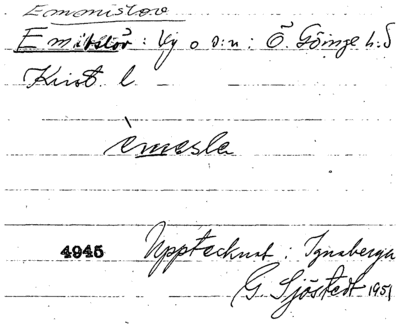 Emmislöv
Emitslöv: Vg o. s:n: Ö. Göinge h:d
Krist. l.
èmesle
4945 Upptecknat: Ignaberga
G. Sjöstedt 1951